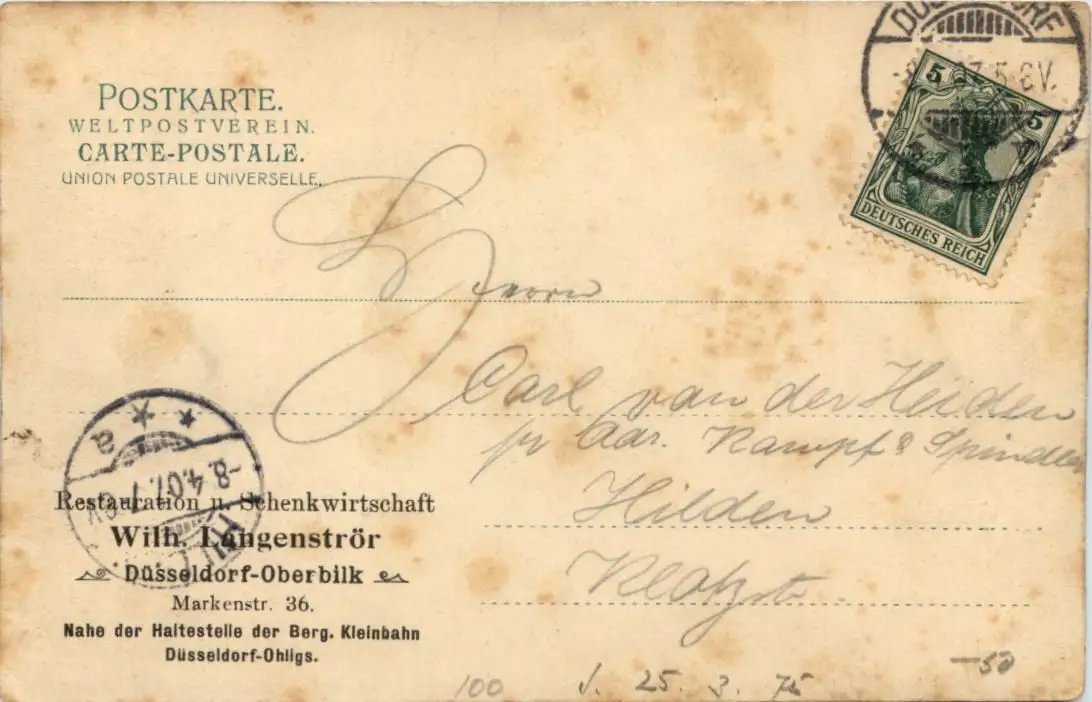 POSTKARTE.
WELTPOSTVEREIN.
CARTE-POSTALE.
UNION POSTALE UNIVERSELLE.
5 5
DEUTSCHES REICH
Herrn
Carl van der Heiden
pr Adr. Kampf & Spindler
Hilden
Klotzstr.
a
-8.4.07.7
Restauration u. Schenkwirtschaft
Wilh. Langenströr
Düsseldorf-Oberbilk
Markenstr. 36.
Nahe der Haltestelle der Berg. Kleinbahn
Düsseldorf-Ohligs.
-50
100 J. 25. 3. 75